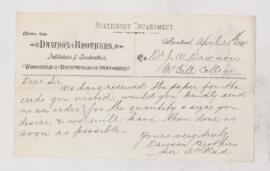 STATIONERY DEPARTMENT.
DAWSON BROTHERS,
Montreal April
Dr J. W. Dawson
McGill College
Dear Sir
We have received the paper for the
cards you wished, would you kindly send
us an order for the quantity & sizes you
desire & we will have them done as
soon as possible
Yours very truly
Dawson Brothers